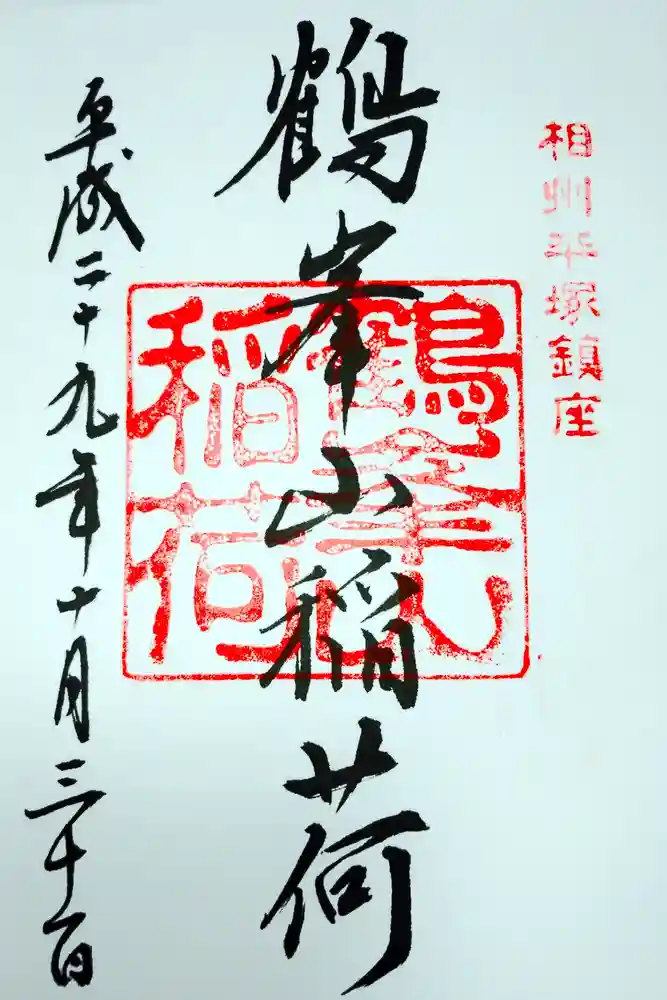 相州平塚鎮座
鶴峯山稲荷
鶴峯山
稲荷
平成二十九年十月三十一日